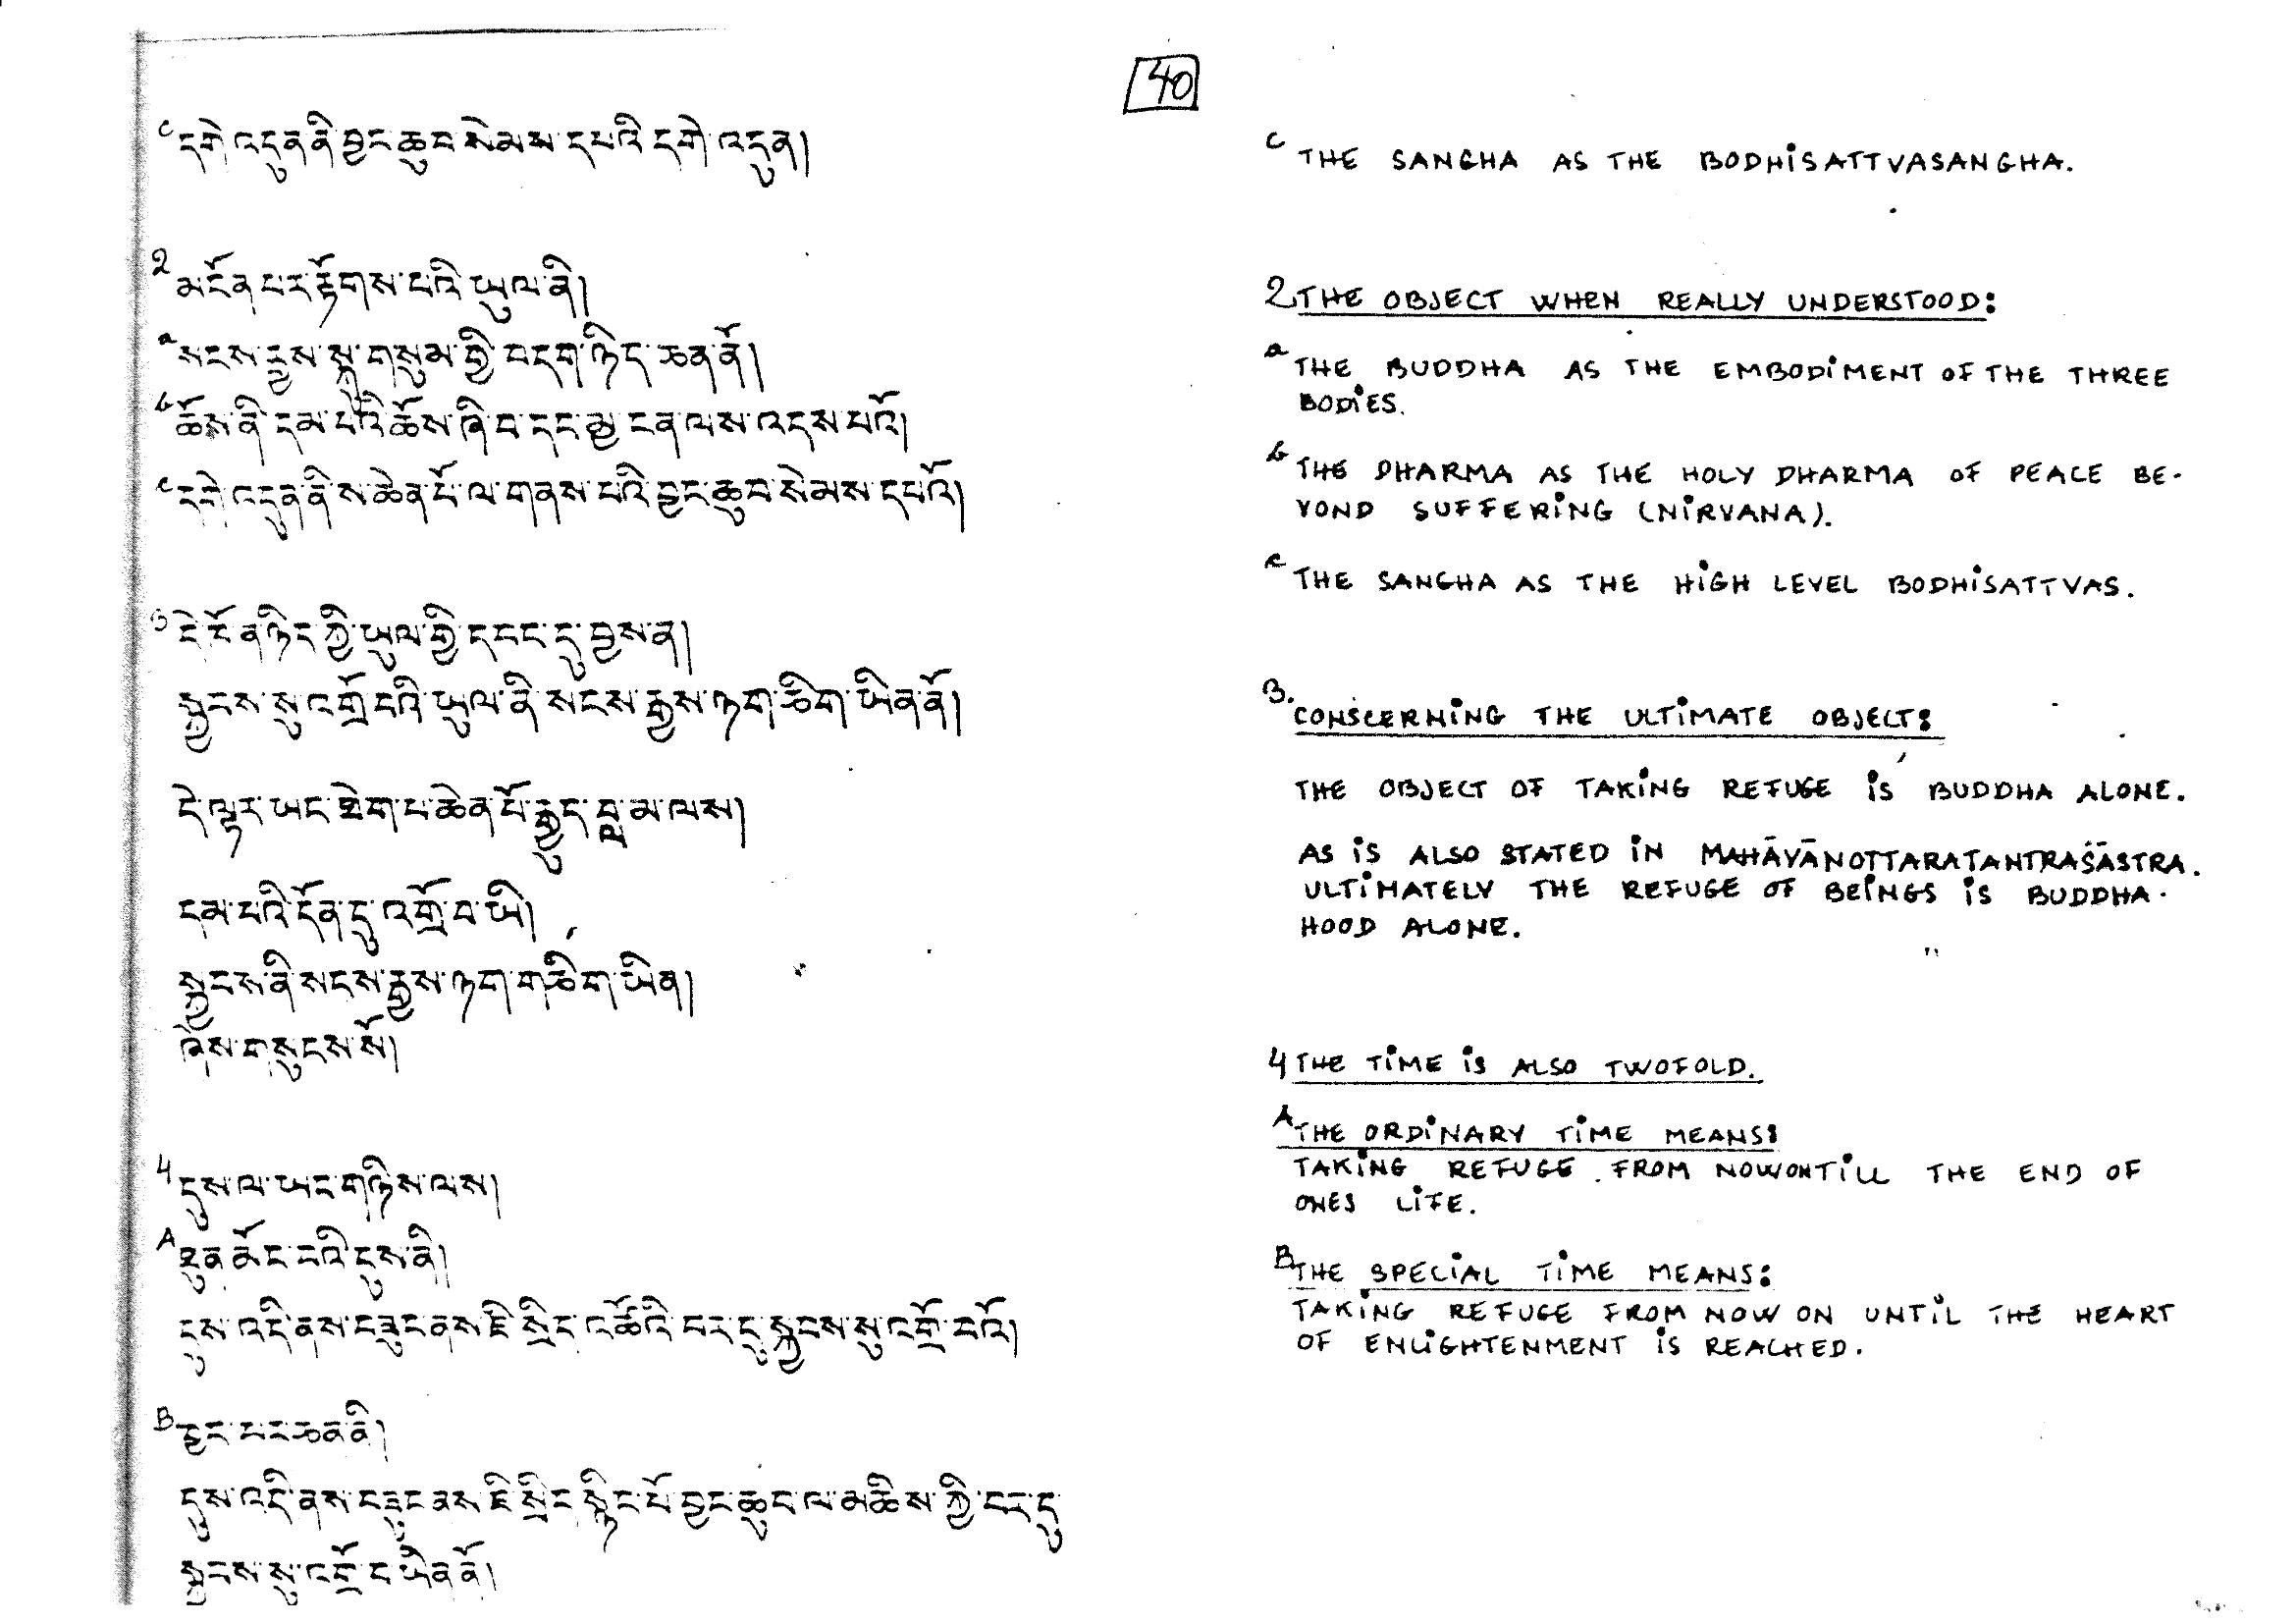 40
c དགེ་འདུན་ནི་བྱང་ཆུབ་སེམས་དཔའི་དགེ་འདུན།
2 མངོན་པར་རྟོགས་པའི་ཡུལ་ནི།
a སངས་རྒྱས་སྐུ་གསུམ་གྱི་བདག་ཉིད་ཅན་ནོ།
b ཆོས་ནི་དམ་པའི་ཆོས་ཞི་བ་དང་མྱ་ངན་ལས་འདས་པའོ།
c དགེ་འདུན་ནི་ས་ཆེན་པོ་ལ་གནས་པའི་བྱང་ཆུབ་སེམས་དཔའོ།
3 དེ་ཁོ་ན་ཉིད་ཀྱི་ཡུལ་གྱི་དབང་དུ་བྱས་ན།
སྐྱབས་སུ་འགྲོ་བའི་ཡུལ་ནི་སངས་རྒྱས་ཉག་ཅིག་ཡིན་ནོ།
དེ་ལྟར་ཡང་ཐེག་པ་ཆེན་པོ་རྒྱུད་བླ་མ་ལས།
དམ་པའི་དོན་དུ་འགྲོ་བ་ཡི།
སྐྱབས་ནི་སངས་རྒྱས་ཉག་གཅིག་ཡིན།
ཞེས་གསུངས་སོ།
4 དུས་ལ་ཡང་གཉིས་ལས།
A ཐུན་མོང་བའི་དུས་ནི།
དུས་འདི་ནས་བཟུང་ནས་ཇི་སྲིད་འཚོའི་བར་དུ་སྐྱབས་སུ་འགྲོ་བའོ།
B ཁྱད་པར་ཅན་ནི།
དུས་འདི་ནས་བཟུང་ནས་ཇི་སྲིད་སྙིང་པོ་བྱང་ཆུབ་ལ་མཆིས་ཀྱི་བར་དུ
སྐྱབས་སུ་འགྲོ་བ་ཡིན་ནོ།
c THE SANGHA AS THE BODHISATTVASANGHA.
2 THE OBJECT WHEN REALLY UNDERSTOOD:
a THE BUDDHA AS THE EMBODIMENT OF THE THREE
BODIES.
b THE DHARMA AS THE HOLY DHARMA OF PEACE BE-
YOND SUFFERING (NIRVANA).
c THE SANGHA AS THE HIGH LEVEL BODHISATTVAS.
3. CONSCERNING THE ULTIMATE OBJECT:
THE OBJECT OF TAKING REFUGE IS BUDDHA ALONE.
AS IS ALSO STATED IN MAHĀYĀNOTTARATANTRAŚĀSTRA.
ULTIMATELY THE REFUGE OF BEINGS IS BUDDHA-
HOOD ALONE.
4 THE TIME IS ALSO TWOFOLD.
A THE ORDINARY TIME MEANS:
TAKING REFUGE FROM NOWONTILL THE END OF
ONES LIFE.
B THE SPECIAL TIME MEANS:
TAKING REFUGE FROM NOW ON UNTIL THE HEART
OF ENLIGHTENMENT IS REACHED.